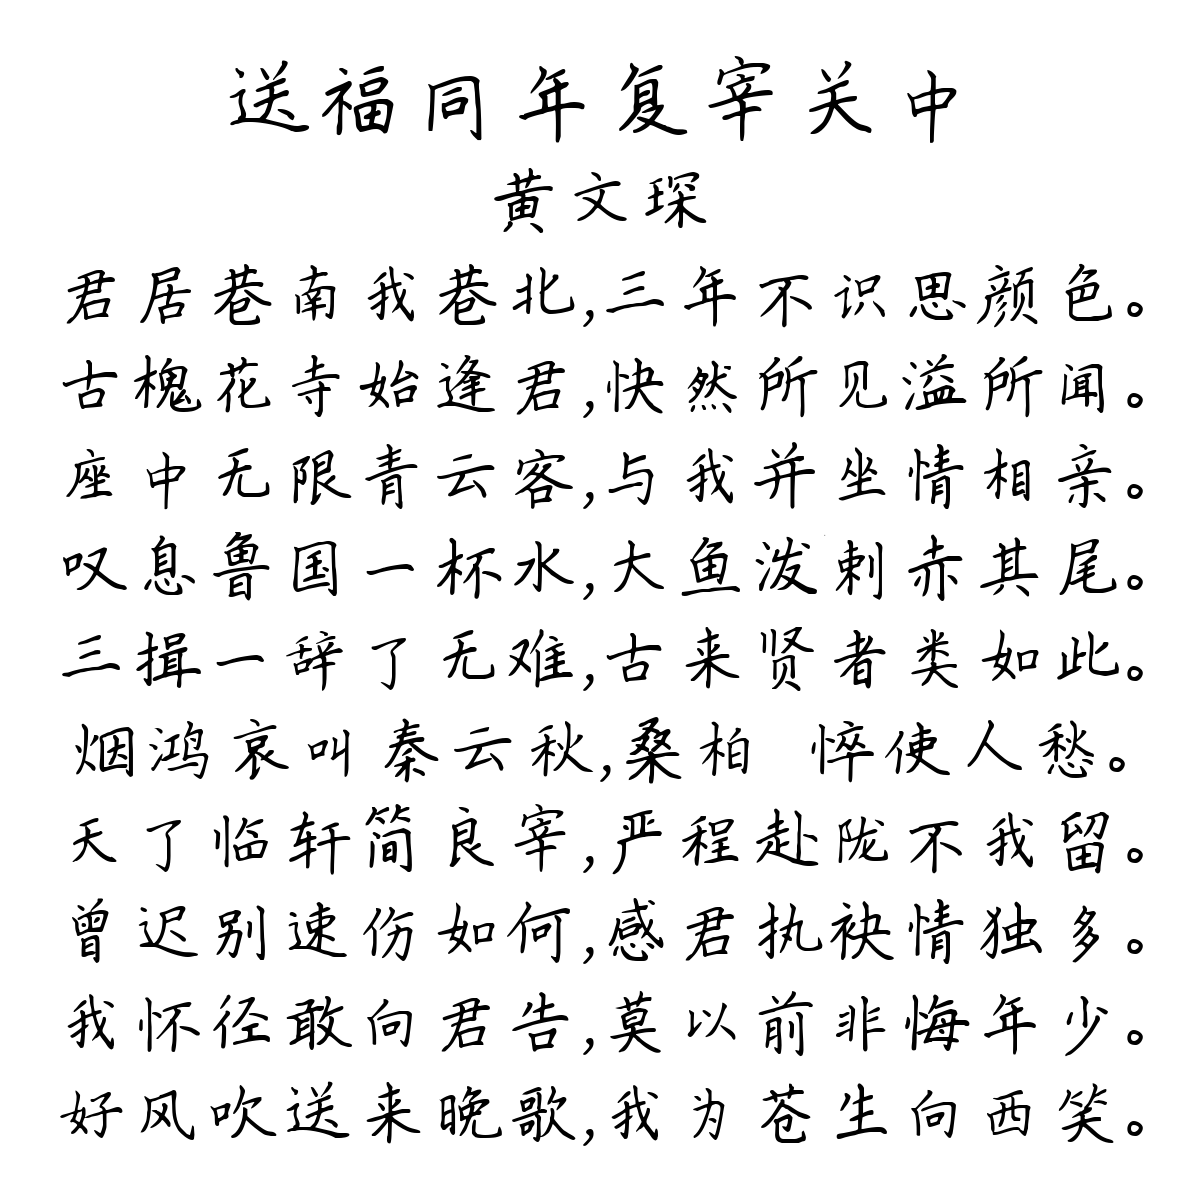 送福同年复宰关中
黄文琛
君居巷南我巷北,三年不识思颜色。
古槐花寺始逢君,快然所见溢所闻。
座中无限青云客,与我并坐情相亲。
叹息鲁国一杯水,大鱼泼剌赤其尾。
三揖一辞了无难,古来贤者类如此。
烟鸿哀叫秦云秋,桑柏 悴使人愁。
天了临轩简良宰,严程赴陇不我留。
曾迟别速伤如何,感君执袂情独多。
我怀径敢向君告,莫以前非悔年少。
好风吹送来晚歌,我为苍生向西笑。